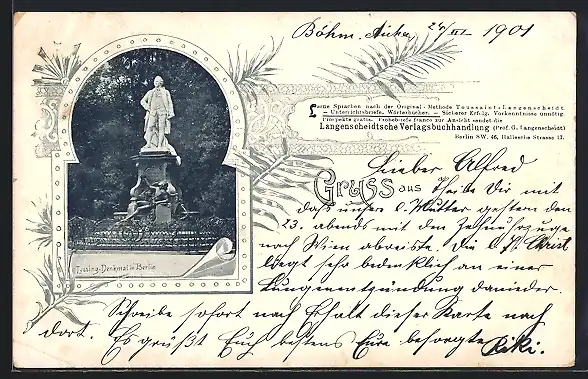 Böhm. Aicha, 24/III. 1901
Lerne Sprachen nach der Original-Methode Toussaint-Langenscheidt
— Unterrichtsbriefe. Wörterbücher. — Sicherer Erfolg. Vorkenntnisse unnötig
Prospekte gratis. Probebriefe franco zur Ansicht sendet die
Langenscheidtsche Verlagsbuchhandlung (Prof. G. Langenscheidt)
Berlin SW. 46, Hallesche Strasse 17.
Lieber Alfred
Gruss aus
theile Dir mit
dass unsere l. Mutter gestern den
23. abends mit dem Zehnuhrzuge
nach Wien abreiste. Die
liegt sehr bedenklich an einer
Lungenentzündung danieder.
Lessing-Denkmal in Berlin
Schreibe sofort nach Erhalt dieser Karte nach
dort. Es grüßt Euch bestens Eure besorgte Riki.